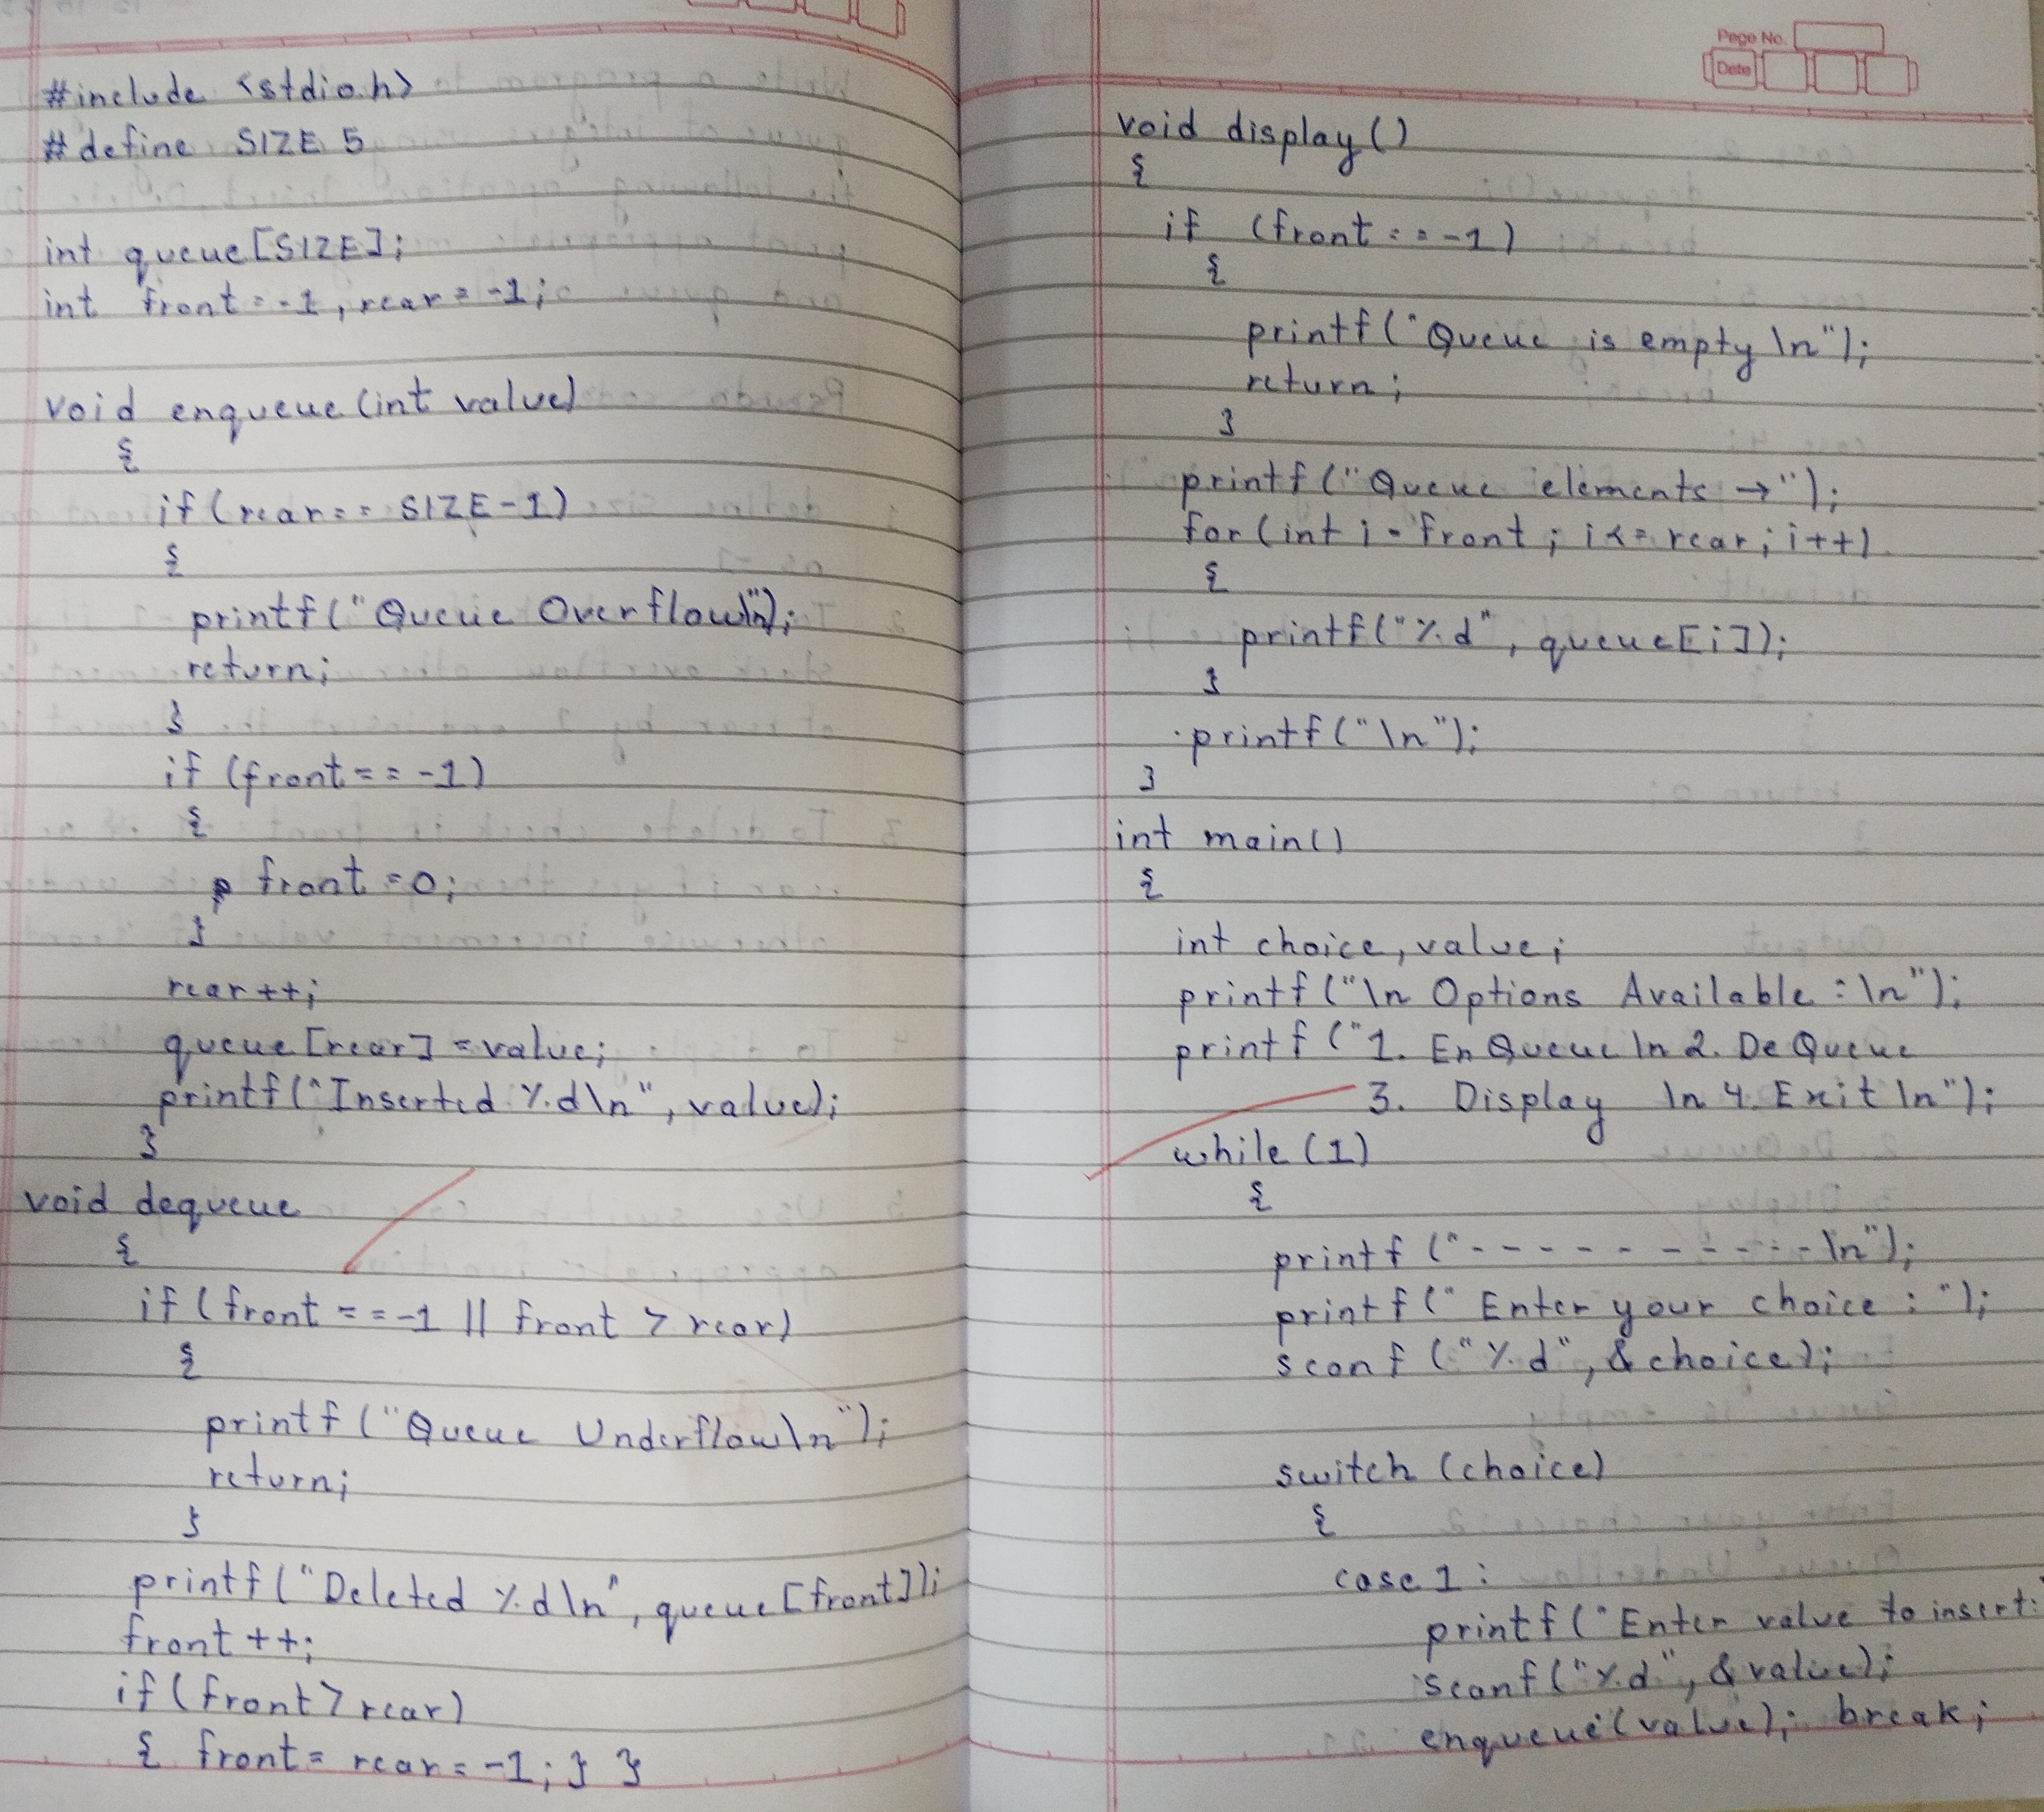 #include <stdio.h>
# define SIZE 5
int queue[SIZE];
int front = -1, rear = -1;
void enqueue(int value)
{
if(rear == SIZE-1)
{
printf("Queue Overflow\n");
return;
}
if (front == -1)
{
front = 0;
}
rear++;
queue[rear] = value;
printf("Inserted %d\n", value);
}
void dequeue
{
if(front == -1 || front > rear)
{
printf("Queue Underflow\n");
return;
}
printf("Deleted %d\n", queue[front]);
front++;
if(front > rear)
{ front = rear = -1; } }
Page No.
Date
void display()
{
if (front == -1)
{
printf("Queue is empty \n");
return;
}
printf("Queue elements →");
for(int i = front; i <= rear; i++)
{
printf("%d", queue[i]);
}
printf("\n");
}
int main()
{
int choice, value;
printf("\n Options Available :\n");
printf("1. EnQueue \n 2. DeQueue
3. Display \n 4. Exit \n");
while(1)
{
printf("- - - - - - - - - - -\n");
printf("Enter your choice : ");
scanf("%d", &choice);
switch (choice)
{
case 1 :
printf("Enter value to insert:
scanf("%d", &value);
enqueue(value); break;